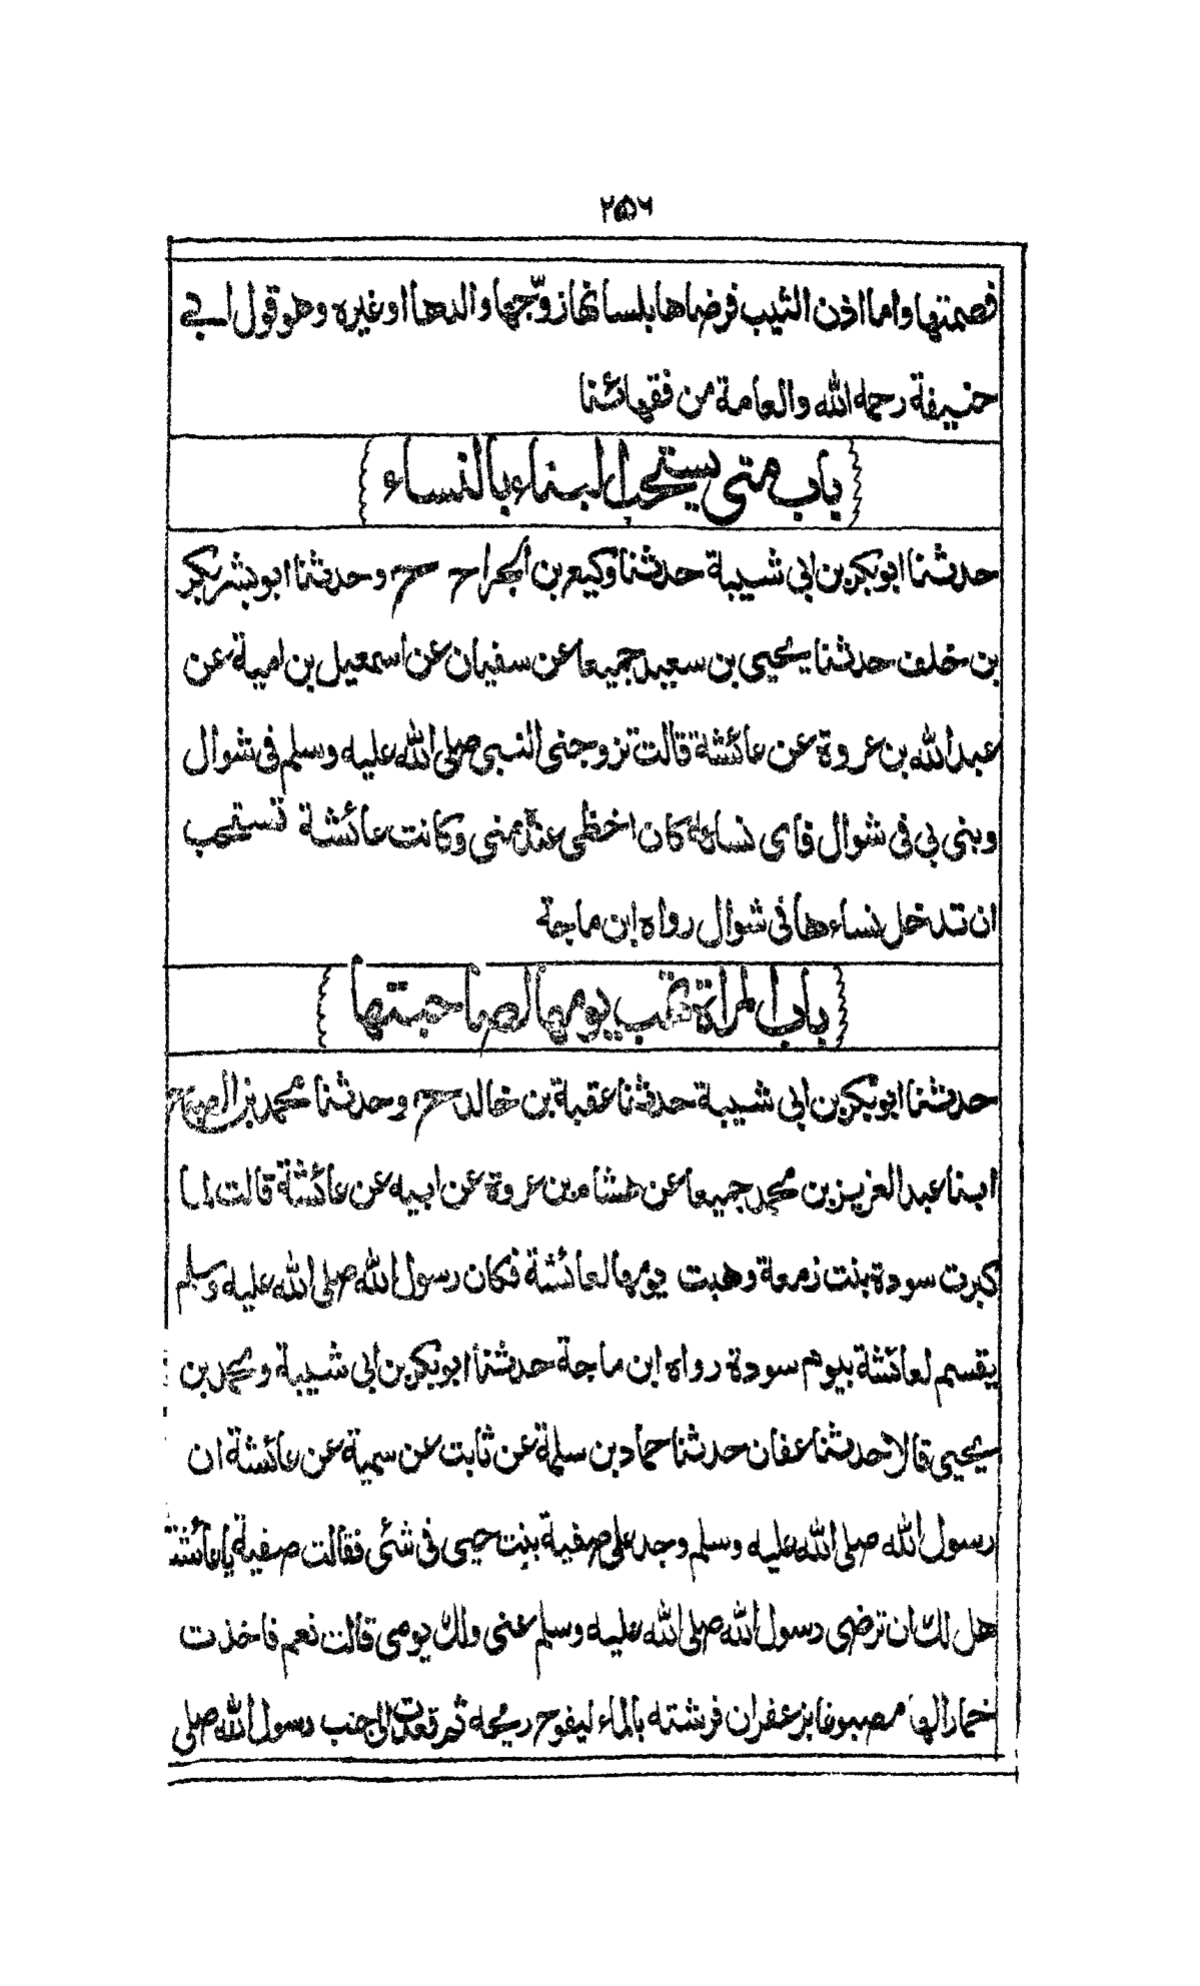 ۲۵۶
فصمتها واما اذن الثيب فرضاها بلسانها زوّجها والدها او غيره وهو قول ابي
حنيفة رحمه الله والعامة من فقهائنا
باب متى يستحب البناء بالنساء
حدثنا ابوبكر بن ابي شيبة حدثنا وكيع بن الجراح ح وحدثنا ابو بشر بكر
بن خلف حدثنا يحيى بن سعيد جميعا عن سفيان عن اسمعيل بن امية عن
عبد الله بن عروة عن عائشة قالت تزوجنى النبي صلى الله عليه وسلم فى شوال
وبنى بي فى شوال فاى نسائه كان احظى عنده منى وكانت عائشة تستحب
ان تدخل نساءها فى شوال رواه ابن ماجة
باب المرأة تهب يومها لصاحبتها
حدثنا ابوبكر بن ابى شيبة حدثنا عقبة بن خالد ح وحدثنا محمد بن الصباح
ابنا عبد العزيز بن محمد جميعا عن هشام بن عروة عن ابيه عن عائشة قالت لما
كبرت سودة بنت زمعة وهبت يومها لعائشة فكان رسول الله صلى الله عليه وسلم
يقسم لعائشة بيوم سودة رواه ابن ماجة حدثنا ابوبكر بن ابي شيبة ومحمد بن
يحيى قالا حدثنا عفان حدثنا حماد بن سلمة عن ثابت عن سمية عن عائشة ان
رسول الله صلى الله عليه وسلم وجد على صفية بنت حيى فى شئى فقالت صفية يا عائشة
هل لك ان ترضى رسول الله صلى الله عليه وسلم عنى ولك يومى قالت نعم فاخذت
خمارا لها مصبوغا بزعفران فرشته بالماء ليفوح ريحه ثم قعدت الى جنب رسول الله صلى